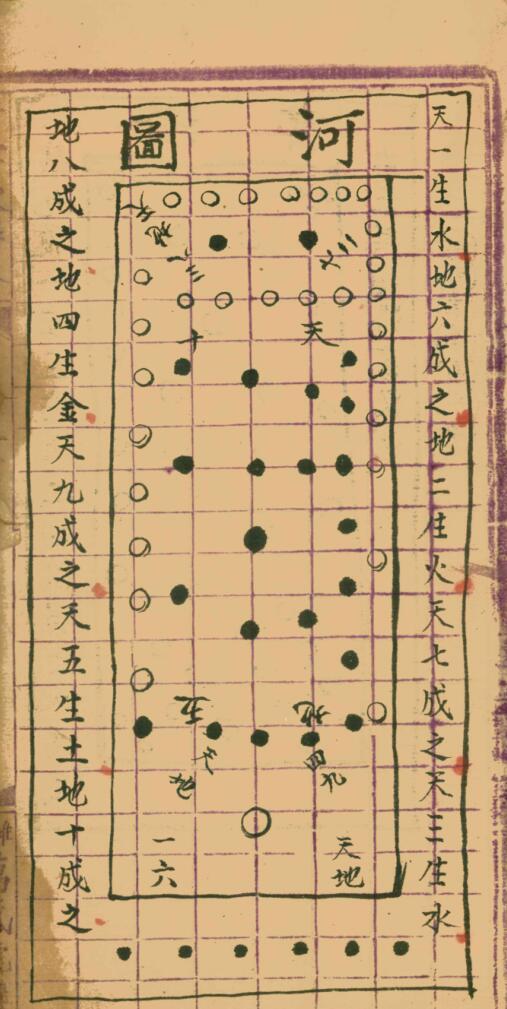 河圖
天一生水地六成之地二生火天七成之天三生水
地八成之地四生金天九成之天五生土地十成之
天
十
四九
天地
一六